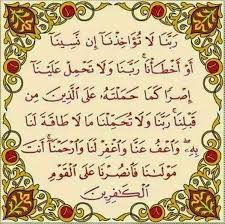 رَبَّنَا لَا تُؤَاخِذْنَا إِن نَّسِينَا
أَوْ أَخْطَأْنَا ۚ رَبَّنَا وَلَا تَحْمِلْ عَلَيْنَا
إِصْرًا كَمَا حَمَلْتَهُ عَلَى الَّذِينَ مِن
قَبْلِنَا ۚ رَبَّنَا وَلَا تُحَمِّلْنَا مَا لَا طَاقَةَ لَنَا
بِهِ ۖ وَاعْفُ عَنَّا وَاغْفِرْ لَنَا وَارْحَمْنَا ۚ أَنتَ
مَوْلَىٰنَا فَانصُرْنَا عَلَى الْقَوْمِ
الْكَٰفِرِينَ